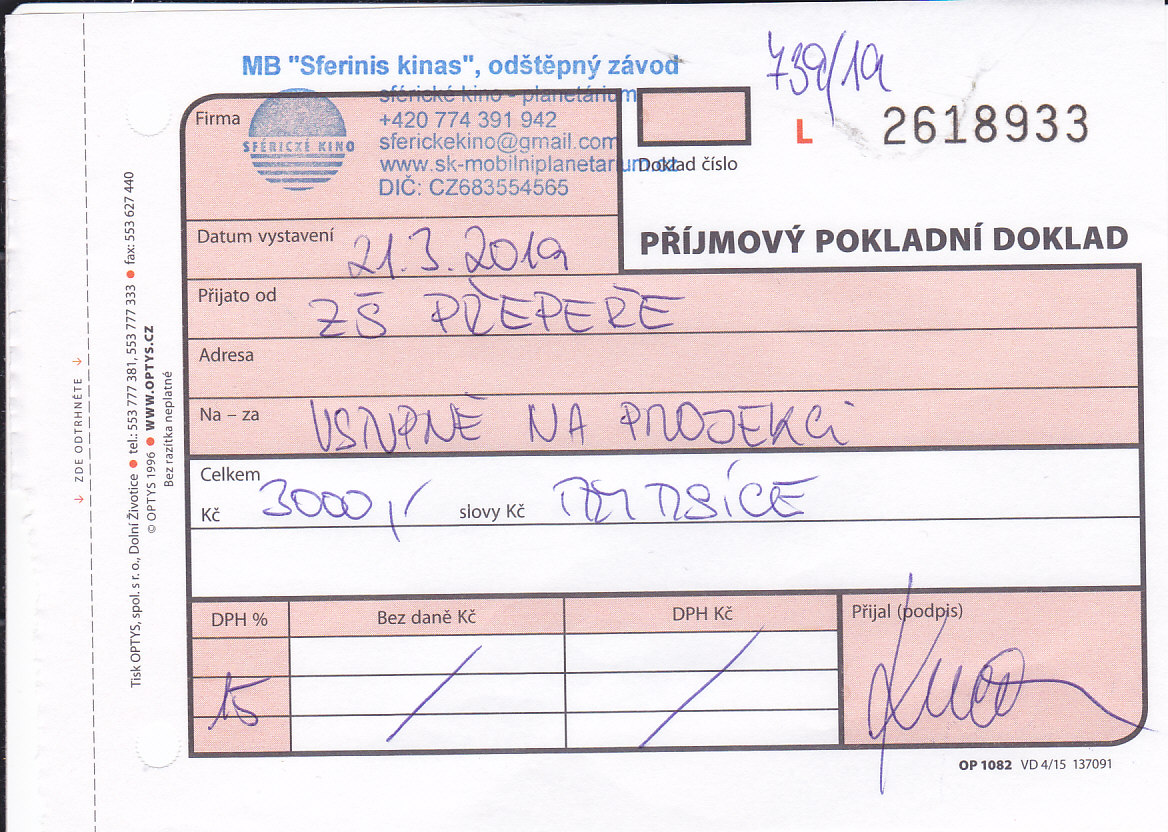 MB "Sferinis kinas", odštěpný závod
739/19
Firma
sférické kino - planetárium
SFÉRICKÉ KINO
+420 774 391 942
sferickekino@gmail.com
www.sk-mobilniplanetarium.cz
DIČ: CZ683554565
L 2618933
Doklad číslo
PŘÍJMOVÝ POKLADNÍ DOKLAD
Datum vystavení 21.3.2019
Přijato od ZŠ PŘEPEŘE
Adresa
Na – za VSTUPNÉ NA PROJEKCI
Celkem
Kč 3000,- slovy Kč TŘI TISÍCE
DPH % Bez daně Kč DPH Kč Přijal (podpis)
15
OP 1082 VD 4/15 137091
ZDE ODTRHNĚTE
Tisk OPTYS, spol. s r. o., Dolní Životice ● tel.: 553 777 381, 553 777 333 ● fax: 553 627 440
© OPTYS 1996 ● WWW.OPTYS.CZ
Bez razítka neplatné